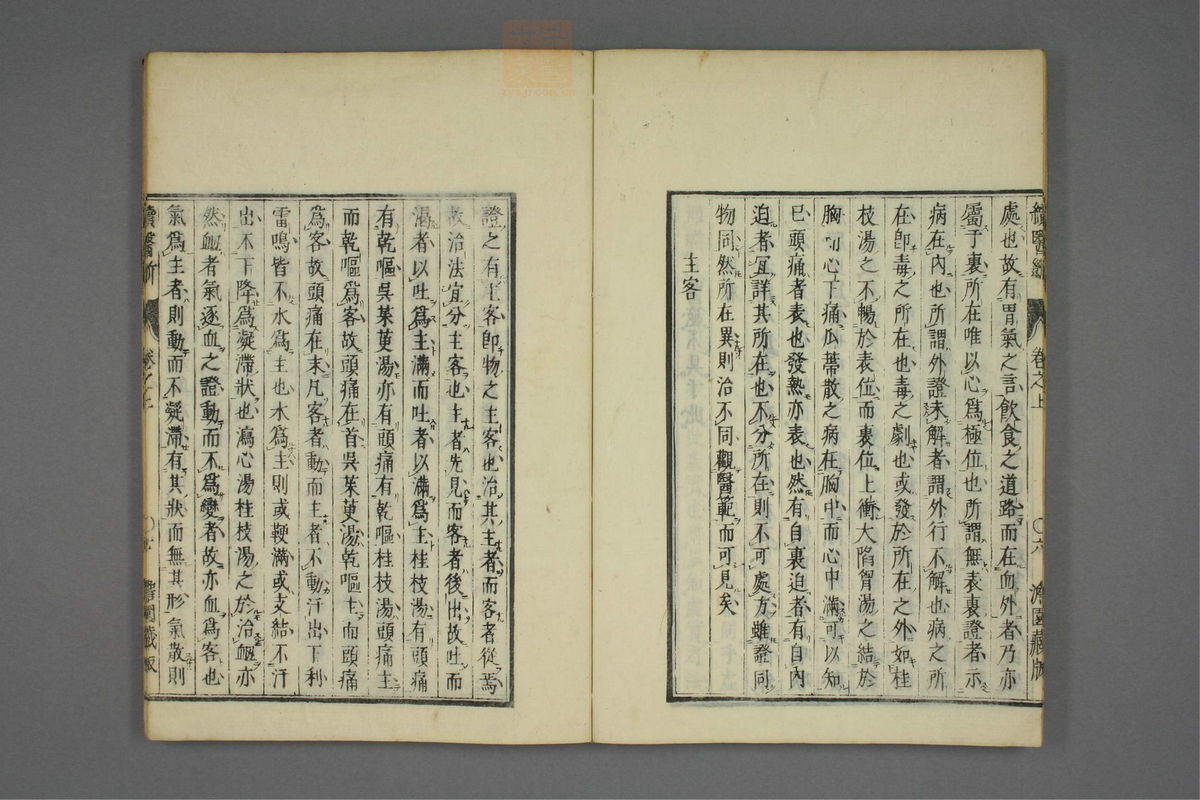 續醫斷 卷之上 〇六 瀯園藏版
處也故有胃氣之言飮食之道路而在血外者乃亦
屬于裏所在唯以心爲極位也所謂無表裏證者示
病在內也所謂外證未解者謂外行不解也病之所
在卽毒之所在也毒之劇也或發於所在之外如桂
枝湯之不暢於表位而裏位上衝大陷胷湯之結於
胸而心下痛瓜蒂散之病在胸中而心中滿可以知
已頭痛者表也發熱亦表也然有自裏迫者有自內
迫者冝詳其所在也不分所在則不可處方雖證同
物同然所在異則治不同觀醫範而可見矣
主客
證之有主客卽物之主客也治其主者而客者從焉
故治法宜分主客也主者先見而客者後出故吐而
渴者以吐爲主滿而吐者以滿爲主桂枝湯有頭痛
有乾嘔吳茱萸湯亦有頭痛有乾嘔桂枝湯頭痛主
而乾嘔爲客故頭痛在首吳茱萸湯乾嘔主而頭痛
爲客故頭痛在末凡客者動而主者不動汗出下利
雷鳴皆不水爲主也水爲主則或鞕滿或支結不汗
出不下降爲凝滯狀也瀉心湯桂枝湯之於治衄亦
然衄者氣逐血之證動而不爲變者故亦血爲客也
氣爲主者則動而不凝滯有其狀而無其形氣散則
續醫斷 卷之上 園藏版